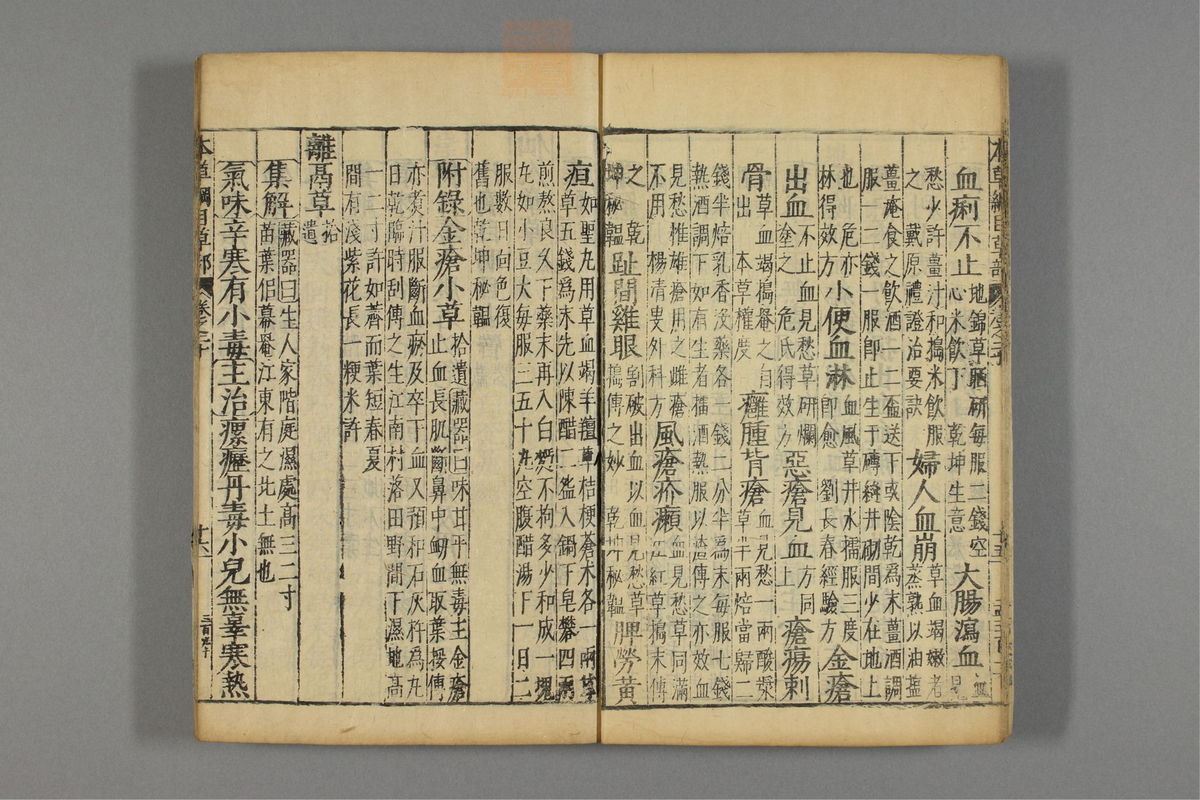 本草綱目草部 卷之二十 十五
血痢不止 地錦草晒研每服二錢空
心米飲下 乾坤生意 大腸瀉血 血見
愁少許薑汁和搗米飲服
之 戴原禮證治要訣 婦人血崩 草血竭嫩者
蒸熟以油鹽
薑淹食之飲酒一二盃送下或陰乾爲末薑酒調
服一二錢一服即止生于磚縫井砌間少在地上
也 危亦
林得效方 小便血淋 血風草井水擂服三度
即愈 劉長春經驗方 金瘡
出血 不止血見愁草研爛
塗之 危氏得效方 惡瘡見血 方同
上 瘡瘍刺
骨 草血竭搗罨之自
出 本草權度 癰腫背瘡 血見愁一兩酸漿
草半兩焙當歸二
錢半焙乳香沒藥各一錢二分半爲末每服七錢
熱酒調下如有生者擂酒熱服以渣傅之亦效血
見愁惟雄瘡用之雌瘡
不用 楊清叟外科方 風瘡疥癬 血見愁草同滿
江紅草搗末傅
之 乾
坤秘韞 趾間雞眼 割破出血以血見愁草
搗傅之妙 乾坤秘韞 脾勞黃
疸 如聖丸用草血竭羊羶草桔梗蒼朮各一兩甘
草五錢爲末先以陳醋二盌入鍋下皂礬四兩
煎熬良久下藥末再入白麪不拘多少和成一塊
丸如小豆大每服三五十丸空腹醋湯下一日二
服數日面色復
舊也乾坤秘韞
附錄金瘡小草 拾遺藏器曰味甘平無毒主金瘡
止血長肌斷鼻中衄血取葉挼傅
亦煑汁服斷血瘀及卒下血又預和石灰杵爲丸
日乾臨時刮傅之生江南村落田野間下濕地高
一二寸許如薺而葉短春夏
間有淺紫花長一粳米許
離鬲草 拾
遺
集解 藏器曰生人家階庭濕處高三二寸
苗葉似幕罨江東有之北土無也
氣味辛寒有小毒主治瘰癧丹毒小兒無辜寒熱
本草綱目草部 卷之二十 十六